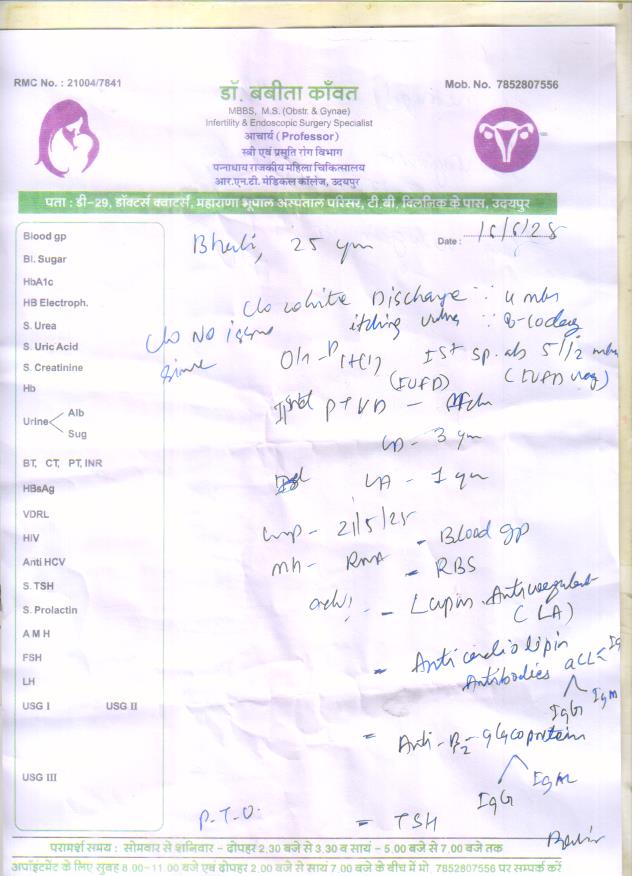 RMC No. : 21004/7841
Mob. No. 7852807556
डॉ. बबीता काँवत
MBBS, M.S. (Obstr. & Gynae)
Infertility & Endoscopic Surgery Specialist
आचार्य (Professor)
स्त्री एवं प्रसूति रोग विभाग
पन्नाधाय राजकीय महिला चिकित्सालय
आर.एन.टी. मेडिकल कॉलेज, उदयपुर
पता : डी-29, डॉक्टर्स क्वाटर्स, महाराणा भूपाल अस्पताल परिसर, टी.बी. क्लिनिक के पास, उदयपुर
Date :
25
Blood gp
Bl. Sugar
HbA1c
HB Electroph.
S. Urea
S. Uric Acid
S. Creatinine
Hb
Urine
Alb
Sug
BT, CT, PT, INR
HBsAg
VDRL
HIV
Anti HCV
S. TSH
S. Prolactin
A M H
FSH
LH
USG I USG II
USG III
c/o white Discharge
itching
c/o No issue
since
(IUFD)
LA - 1
Lmp - 21/5/25
- Blood gp
- RBS
- Lupus Anticoagulant
(LA)
= Anticardiolipin
Antibodies aCL
IgG IgM
= Anti-B2-glycoprotein
IgG IgM
= TSH
P.T.O.
परामर्श समय : सोमवार से शनिवार - दोपहर 2.30 बजे से 3.30 व सायं - 5.00 बजे से 7.00 बजे तक
अपॉइंटमेंट के लिए सुबह 8.00-11.00 बजे एवं दोपहर 2.00 बजे से सायं 7.00 बजे के बीच में मो. 7852807556 पर सम्पर्क करें